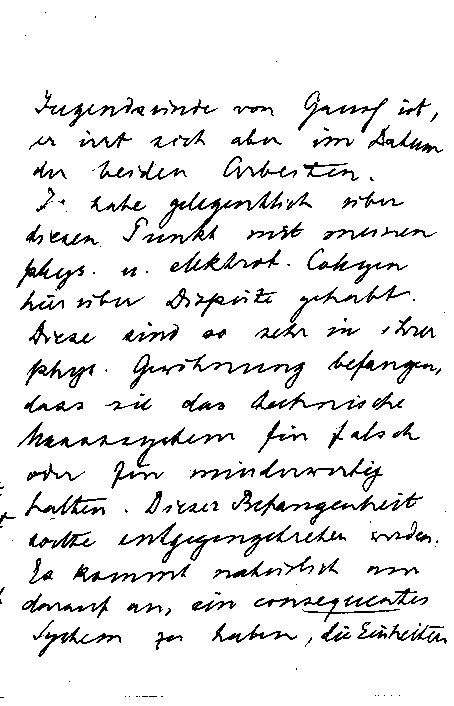 Jugendsünde von Gauss ist,
er irrt sich aber im Datum
der beiden Arbeiten.
Ich habe gelegentlich über
diesen Punkt mit meinen
phys. u. elektrot. Collegen
hierüber Dispüte gehabt.
Diese sind so sehr in ihrer
phys. Gewöhnung befangen,
dass sie das technische
Maasssystem für falsch
oder für minderwertig
halten. Dieser Befangenheit
sollte entgegengetreten werden.
Es kommt natürlich nur
darauf an, ein consequentes
System zu haben, die Einheiten